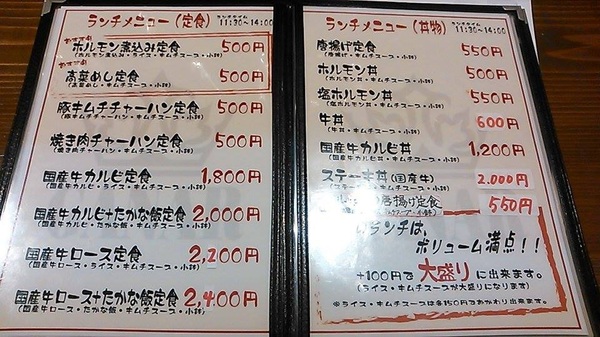 ランチメニュー(定食) ランチタイム 11:30~14:00
おすすめ
ホルモン煮込み定食 500円
(ホルモン煮込み・ライス・キムチスープ・小鉢)
おすすめ
高菜めし定食 500円
(高菜めし・キムチスープ・小鉢)
豚キムチチャーハン定食 500円
(豚キムチチャーハン・キムチスープ・小鉢)
焼き肉チャーハン定食 500円
(焼き肉チャーハン・キムチスープ・小鉢)
国産牛カルビ定食 1,800円
(国産牛カルビ・ライス・キムチスープ・小鉢)
国産牛カルビ+たかな飯定食 2,000円
(国産牛カルビ・たかな飯・キムチスープ・小鉢)
国産牛ロース定食 2,200円
(国産牛ロース・ライス・キムチスープ・小鉢)
国産牛ロース+たかな飯定食 2,400円
(国産牛ロース・たかな飯・キムチスープ・小鉢)
ランチメニュー(丼物) ランチタイム 11:30~14:00
唐揚げ定食 550円
(唐揚げ・キムチスープ・小鉢)
ホルモン丼 500円
(ホルモン丼・キムチスープ・小鉢)
塩ホルモン丼 550円
(塩ホルモン丼・キムチスープ・小鉢)
牛丼 600円
(牛丼・キムチスープ・小鉢)
国産牛カルビ丼 1,200円
(国産牛カルビ丼・キムチスープ・小鉢)
ステーキ丼(国産牛) 2,000円
(ステーキ丼・キムチスープ・小鉢)
唐揚げ定食 550円
スープ・小鉢)
ランチは、
ボリューム満点!!
+100円で大盛りに出来ます。
(ライス・キムチスープが大盛りになります)
※ライス・キムチスープは各150円でおかわり出来ます。